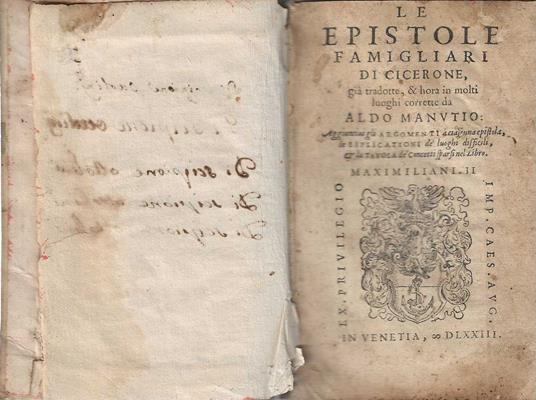 Di scipione
Di scipione
Di scipione
Di scipione
LE
EPISTOLE
FAMIGLIARI
DI CICERONE,
già tradotte, & hora in molti
luoghi corrette da
ALDO MANVTIO:
Aggiuntoui già ARGOMENTI a ciascuna epistola,
le ESPLICATIONI de' luoghi difficili,
& la TAVOLA de' Concetti sparsi nel Libro.
MAXIMILIANI. II
EX. PRIVILEGIO
IMP. CAES. AVG.
IN VENETIA, ∞ DLXXIII.